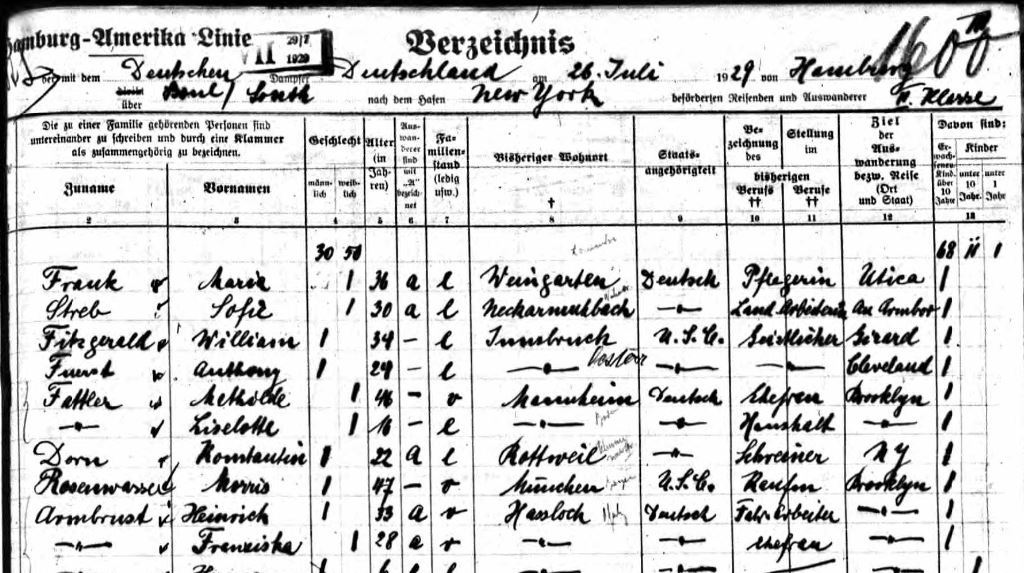 Hamburg-Amerika Linie VII 29/7 1929 Verzeichnis
der mit dem Deutschen Dampfer Deutschland am 26. Juli 1929 von Hamburg
über South nach dem Hafen New York beförderten Reisenden und Auswanderer II. Klasse
Die zu einer Familie gehörenden Personen sind untereinander zu schreiben und durch eine Klammer als zusammengehörig zu bezeichnen. Geschlecht Alter (in Jahren) Auswanderer sind mit "A" bezeichnet Familienstand (ledig usw.) Bisheriger Wohnort † Staatsangehörigkeit Bezeichnung des Stellung im bisherigen Berufs †† Berufe †† Ziel der Auswanderung bezw. Reise (Ort und Staat) Davon sind:
Zuname Vornamen männlich weiblich Erwachsene u. Kind. über 10 Jahre Kinder unter 10 Jahr. unter 1 Jahr
2 3 4 5 6 7 8 9 10 11 12 13
30 50 68 11 1
Frank Maria 1 36 a l Weingarten Deutsch Pflegerin Utica 1
Streb Sofie 1 30 a l Neckarmühlbach -"- Land Arbeiterin Ann Armbor 1
Fitzgerald William 1 34 - l Innsbruck U.S.C. Geistlicher Girard 1
Fuerst Anthony 1 29 - l -"- -"- -"- Cleveland 1
Fattler Methilde 1 46 - v Mannheim Deutsch Ehefrau Brooklyn 1
-"- Liselotte 1 16 - l -"- -"- Haushalt -"- 1
Dorn Konstantin 1 22 a l Rottweil -"- Schreiner N Y 1
Rosenwasser Morris 1 47 - v München U.S.C. Kaufm Brooklyn 1
Armbrust Heinrich 1 33 a v Hassloch Deutsch Fabr. arbeiter -"- 1
-"- Franziska 1 28 a v -"- -"- Ehefrau -"- 1